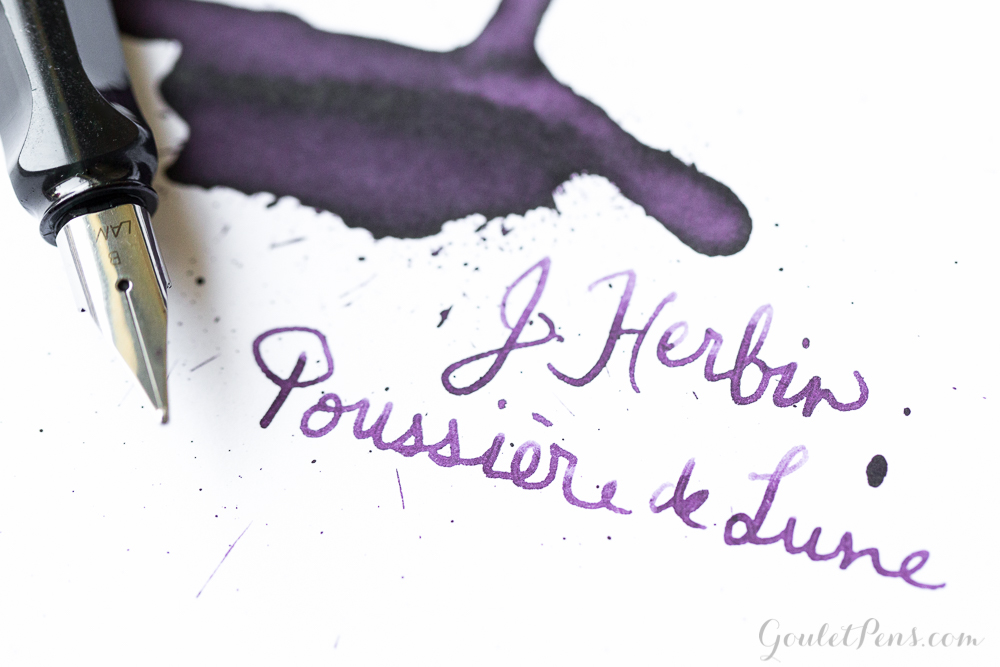 LAMY
B
J. Herbin
Poussière de Lune
GouletPens.com